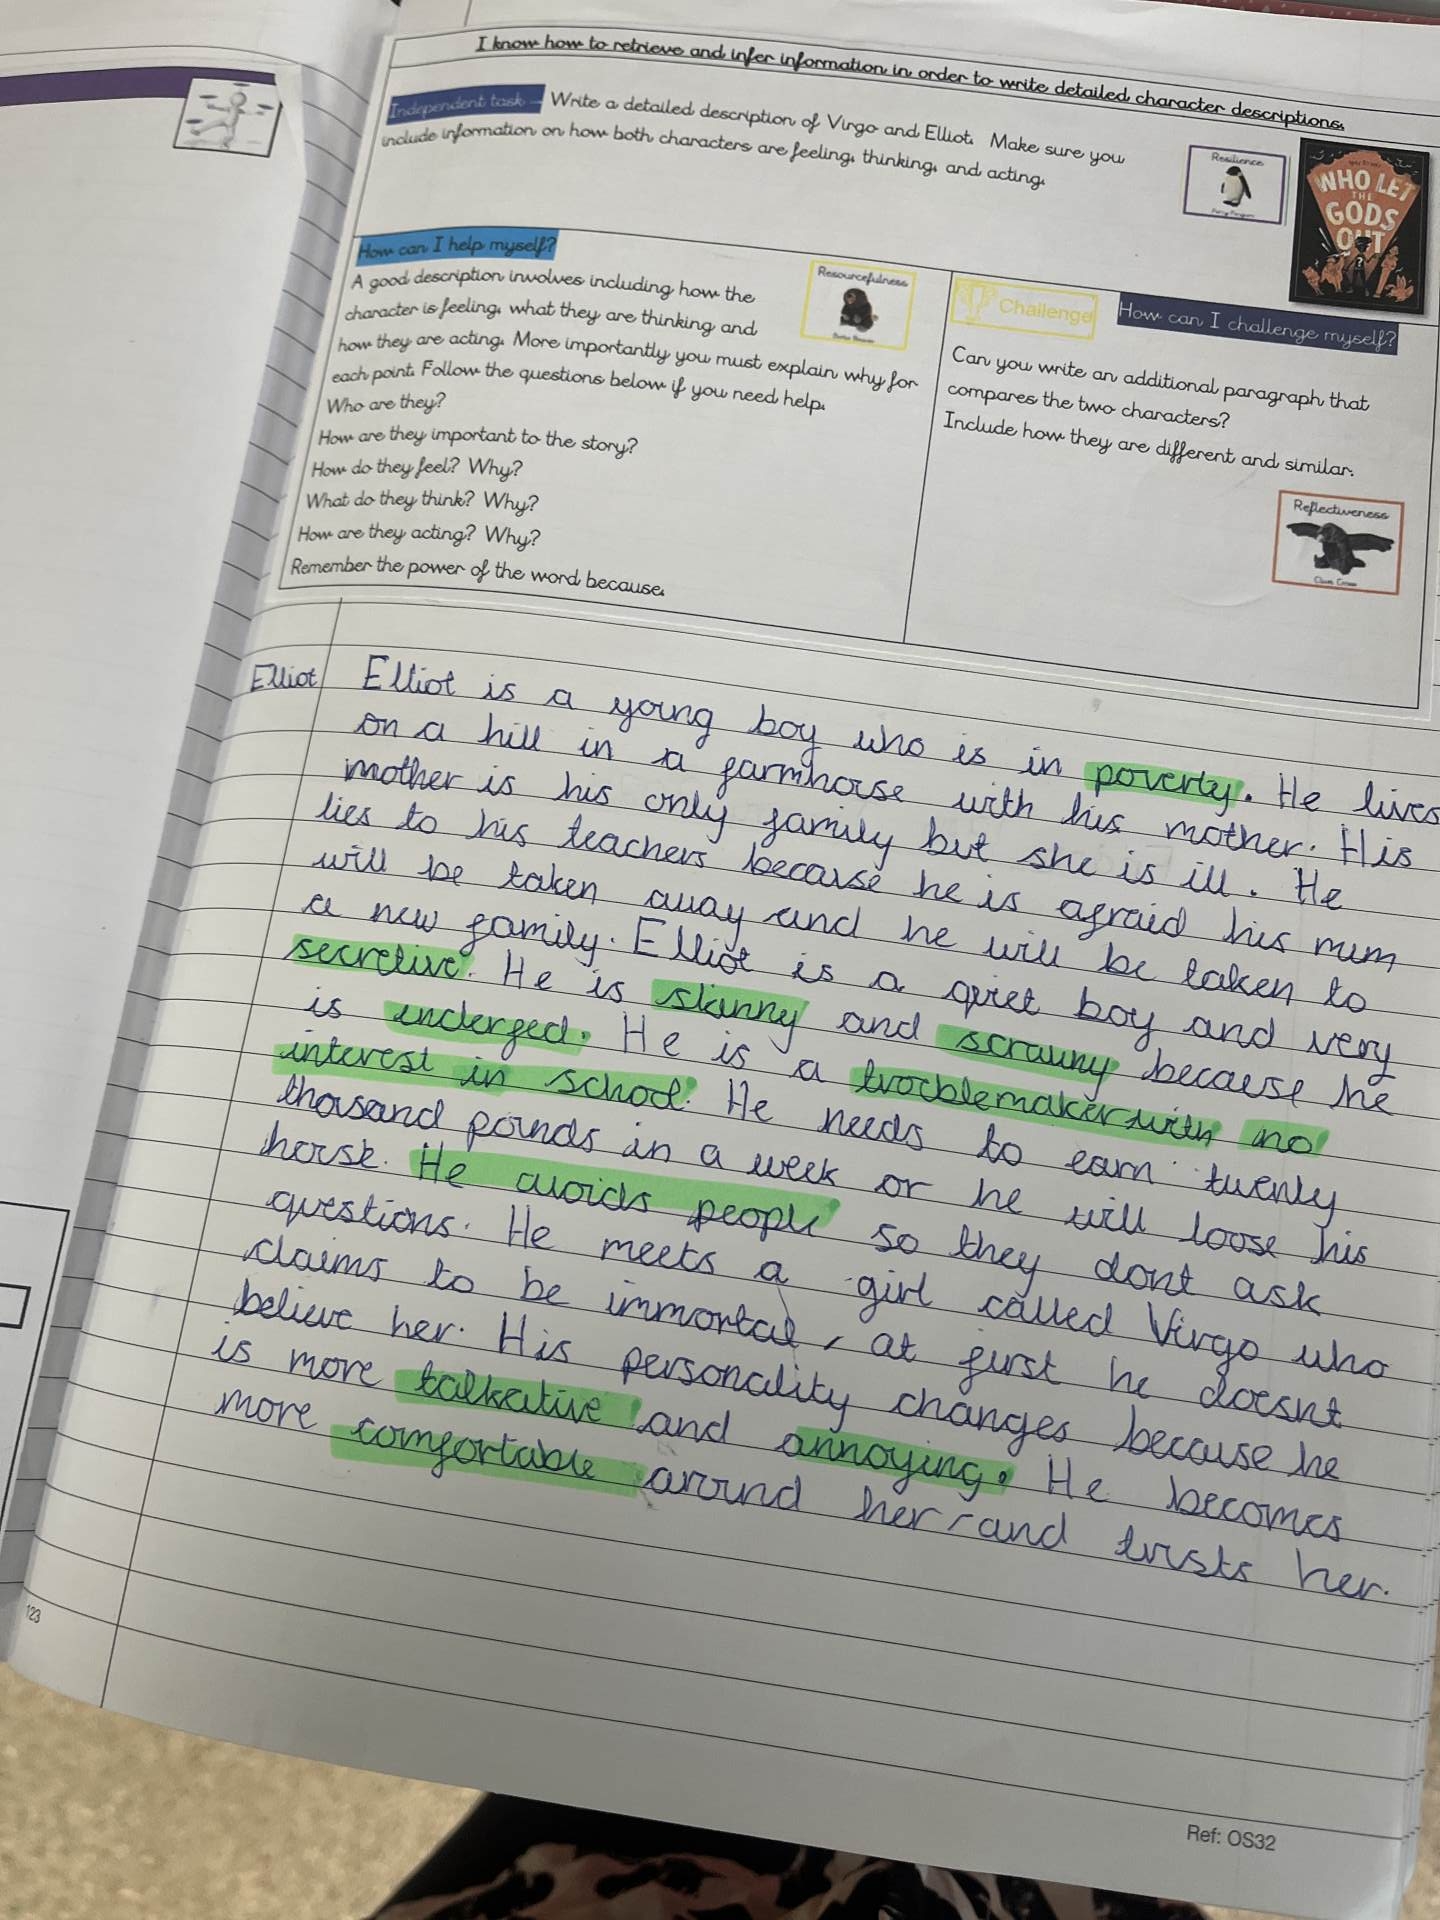 I know how to retrieve and infer information in order to write detailed character descriptions.
Independent task - Write a detailed description of Virgo and Elliot. Make sure you
include information on how both characters are feeling, thinking, and acting.
Resilience
WHO LET
THE
GODS
OUT
How can I help myself?
A good description involves including how the
character is feeling, what they are thinking and
how they are acting. More importantly you must explain why for
each point. Follow the questions below if you need help.
Who are they?
How are they important to the story?
How do they feel? Why?
What do they think? Why?
How are they acting? Why?
Remember the power of the word because.
Resourcefulness
Challenge
How can I challenge myself?
Can you write an additional paragraph that
compares the two characters?
Include how they are different and similar.
Reflectiveness
Elliot
Elliot is a young boy who is in poverty. He lives
on a hill in a farmhouse with his mother. His
mother is his only family but she is ill. He
lies to his teachers because he is afraid his mum
will be taken away and he will be taken to
a new family. Elliot is a quiet boy and very
secretive. He is skinny and scrawny because he
is underfed. He is a troublemaker with no
interest in school. He needs to earn twenty
thousand pounds in a week or he will loose his
house. He avoids people so they dont ask
questions. He meets a girl called Virgo who
claims to be immortal, at first he doesnt
believe her. His personality changes because he
is more talkative and annoying. He becomes
more comfortable around her and trusts her.
123
Ref: OS32